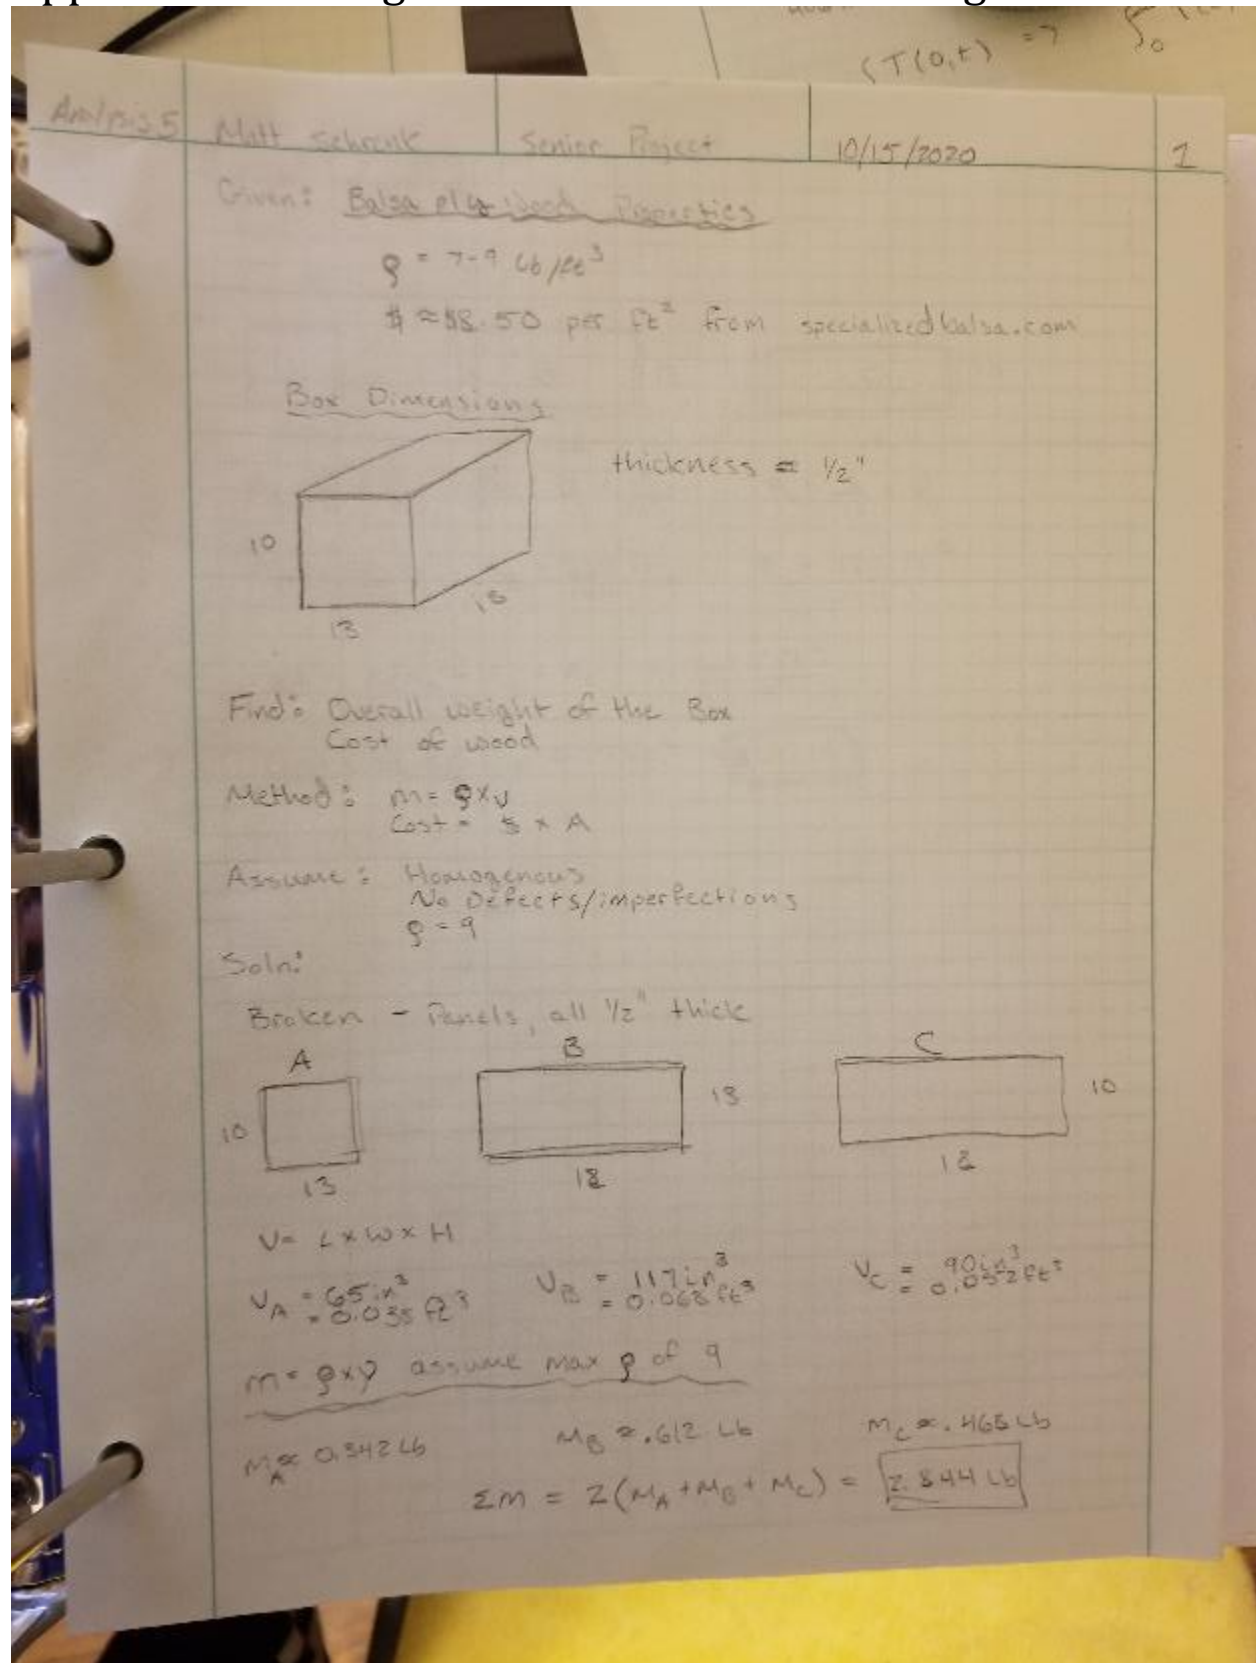 (T(0,t) =>
Analysis 5 Matt Schrenk Senior Project 10/15/2020 1
Given: Balsa plywood Properties
ρ = 7-9 Lb/ft³
$ ≈ $8.50 per ft² from specializedbalsa.com
Box Dimensions
thickness = 1/2"
10
18
13
Find: Overall weight of the Box
Cost of wood
Method: m = ρ x V
Cost = $ x A
Assume: Homogenous
No Defects/imperfections
ρ = 9
Soln:
Broken - Panels, all 1/2" thick
A B C
10 13 10
13 18 18
V = L x W x H
V_A = 65 in³ V_B = 117 in³ V_C = 90 in³
= 0.038 ft³ = 0.068 ft³ = 0.052 ft³
m = ρ x V assume max ρ of 9
M_A ≈ 0.342 Lb M_B ≈ .612 Lb M_C ≈ .468 Lb
ΣM = 2(M_A + M_B + M_C) = 2.844 Lb